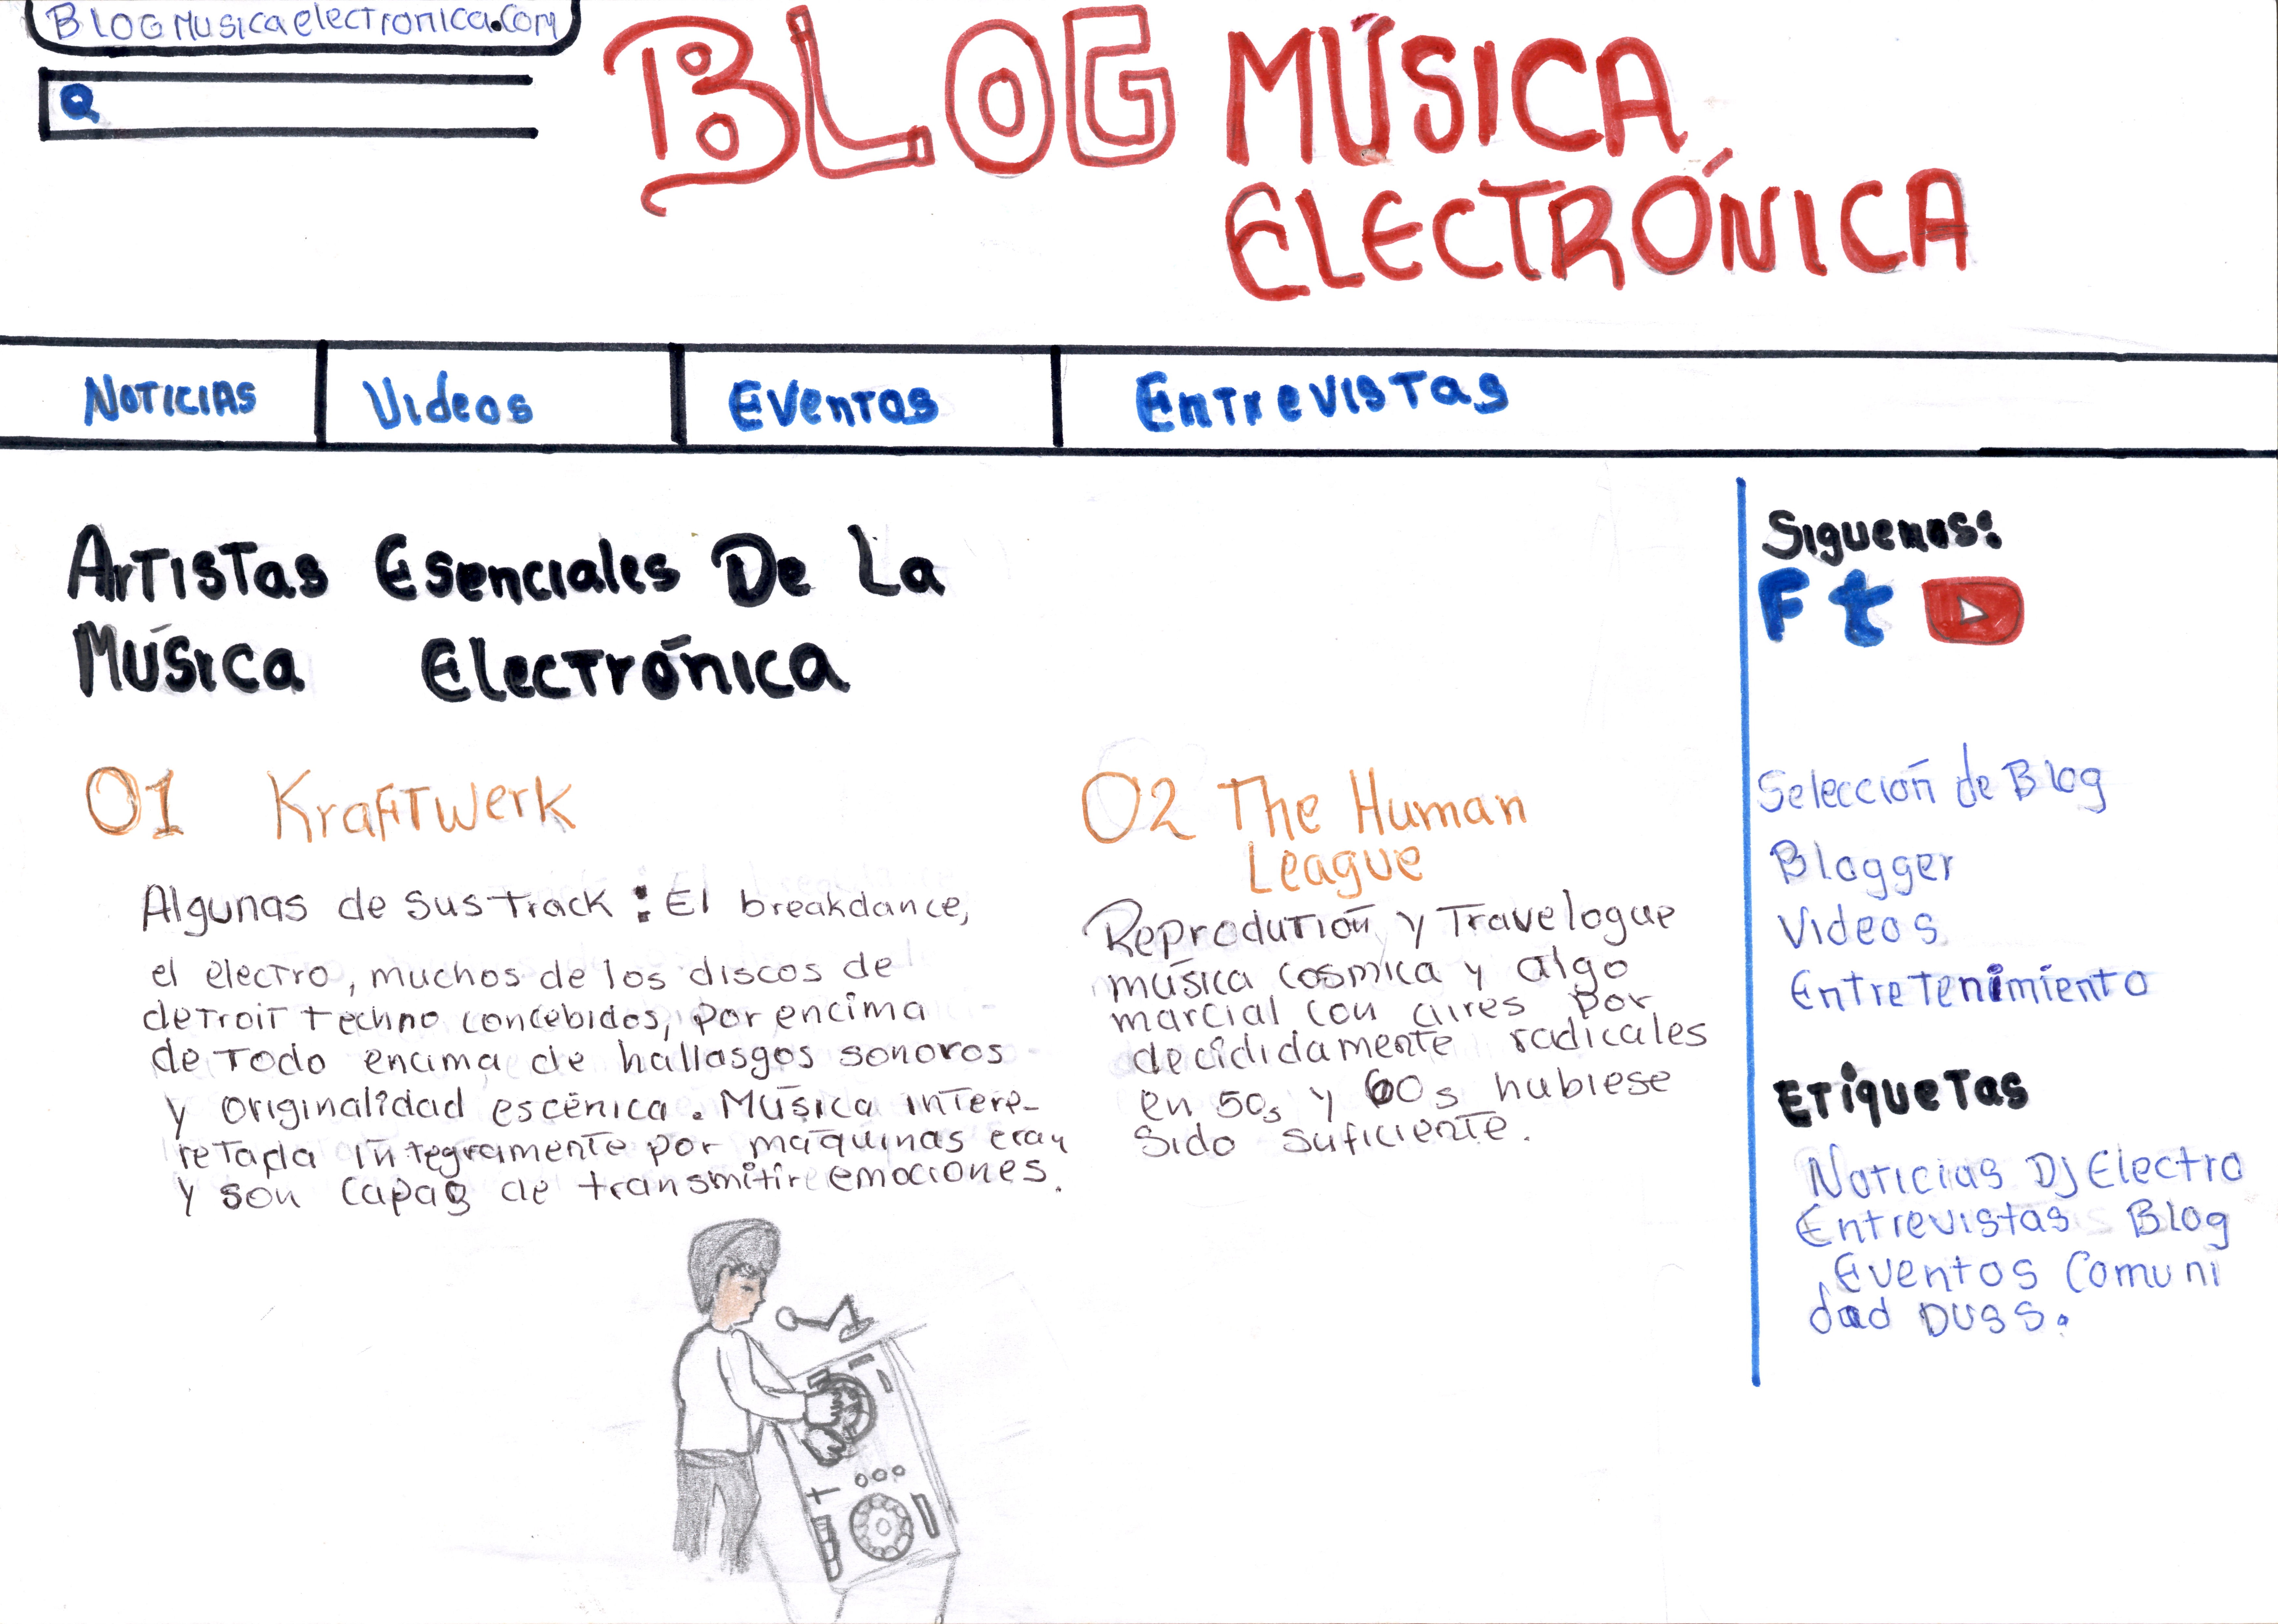 BLOGMusicaelectronica.com
BLOG MÚSICA
ELECTRÓNICA
NOTICIAS Videos EVentos EntrevisTas
ArTisTas Esenciales De La
Música Electrónica
01 KrafTwerk
Algunas de sus track : El breakdance,
el electro, muchos de los discos de
detroit techno concebidos, por encima
de Todo encima de hallasgos sonoros
y originalidad escénica. Música interp-
retada integramente por máquinas eran
y son capas de transmitir emociones.
02 The Human
League
Reprodution y Travelogue
música cosmica y algo
marcial con aires por
decididamente radicales
en 50s y 60s hubiese
sido suficiente.
Siguenos:
F t
Selección de Blog
Blogger
Videos
Entretenimiento
ETiqueTas
Noticias Dj Electro
Entrevistas Blog
Eventos Comuni
dad DUSS.